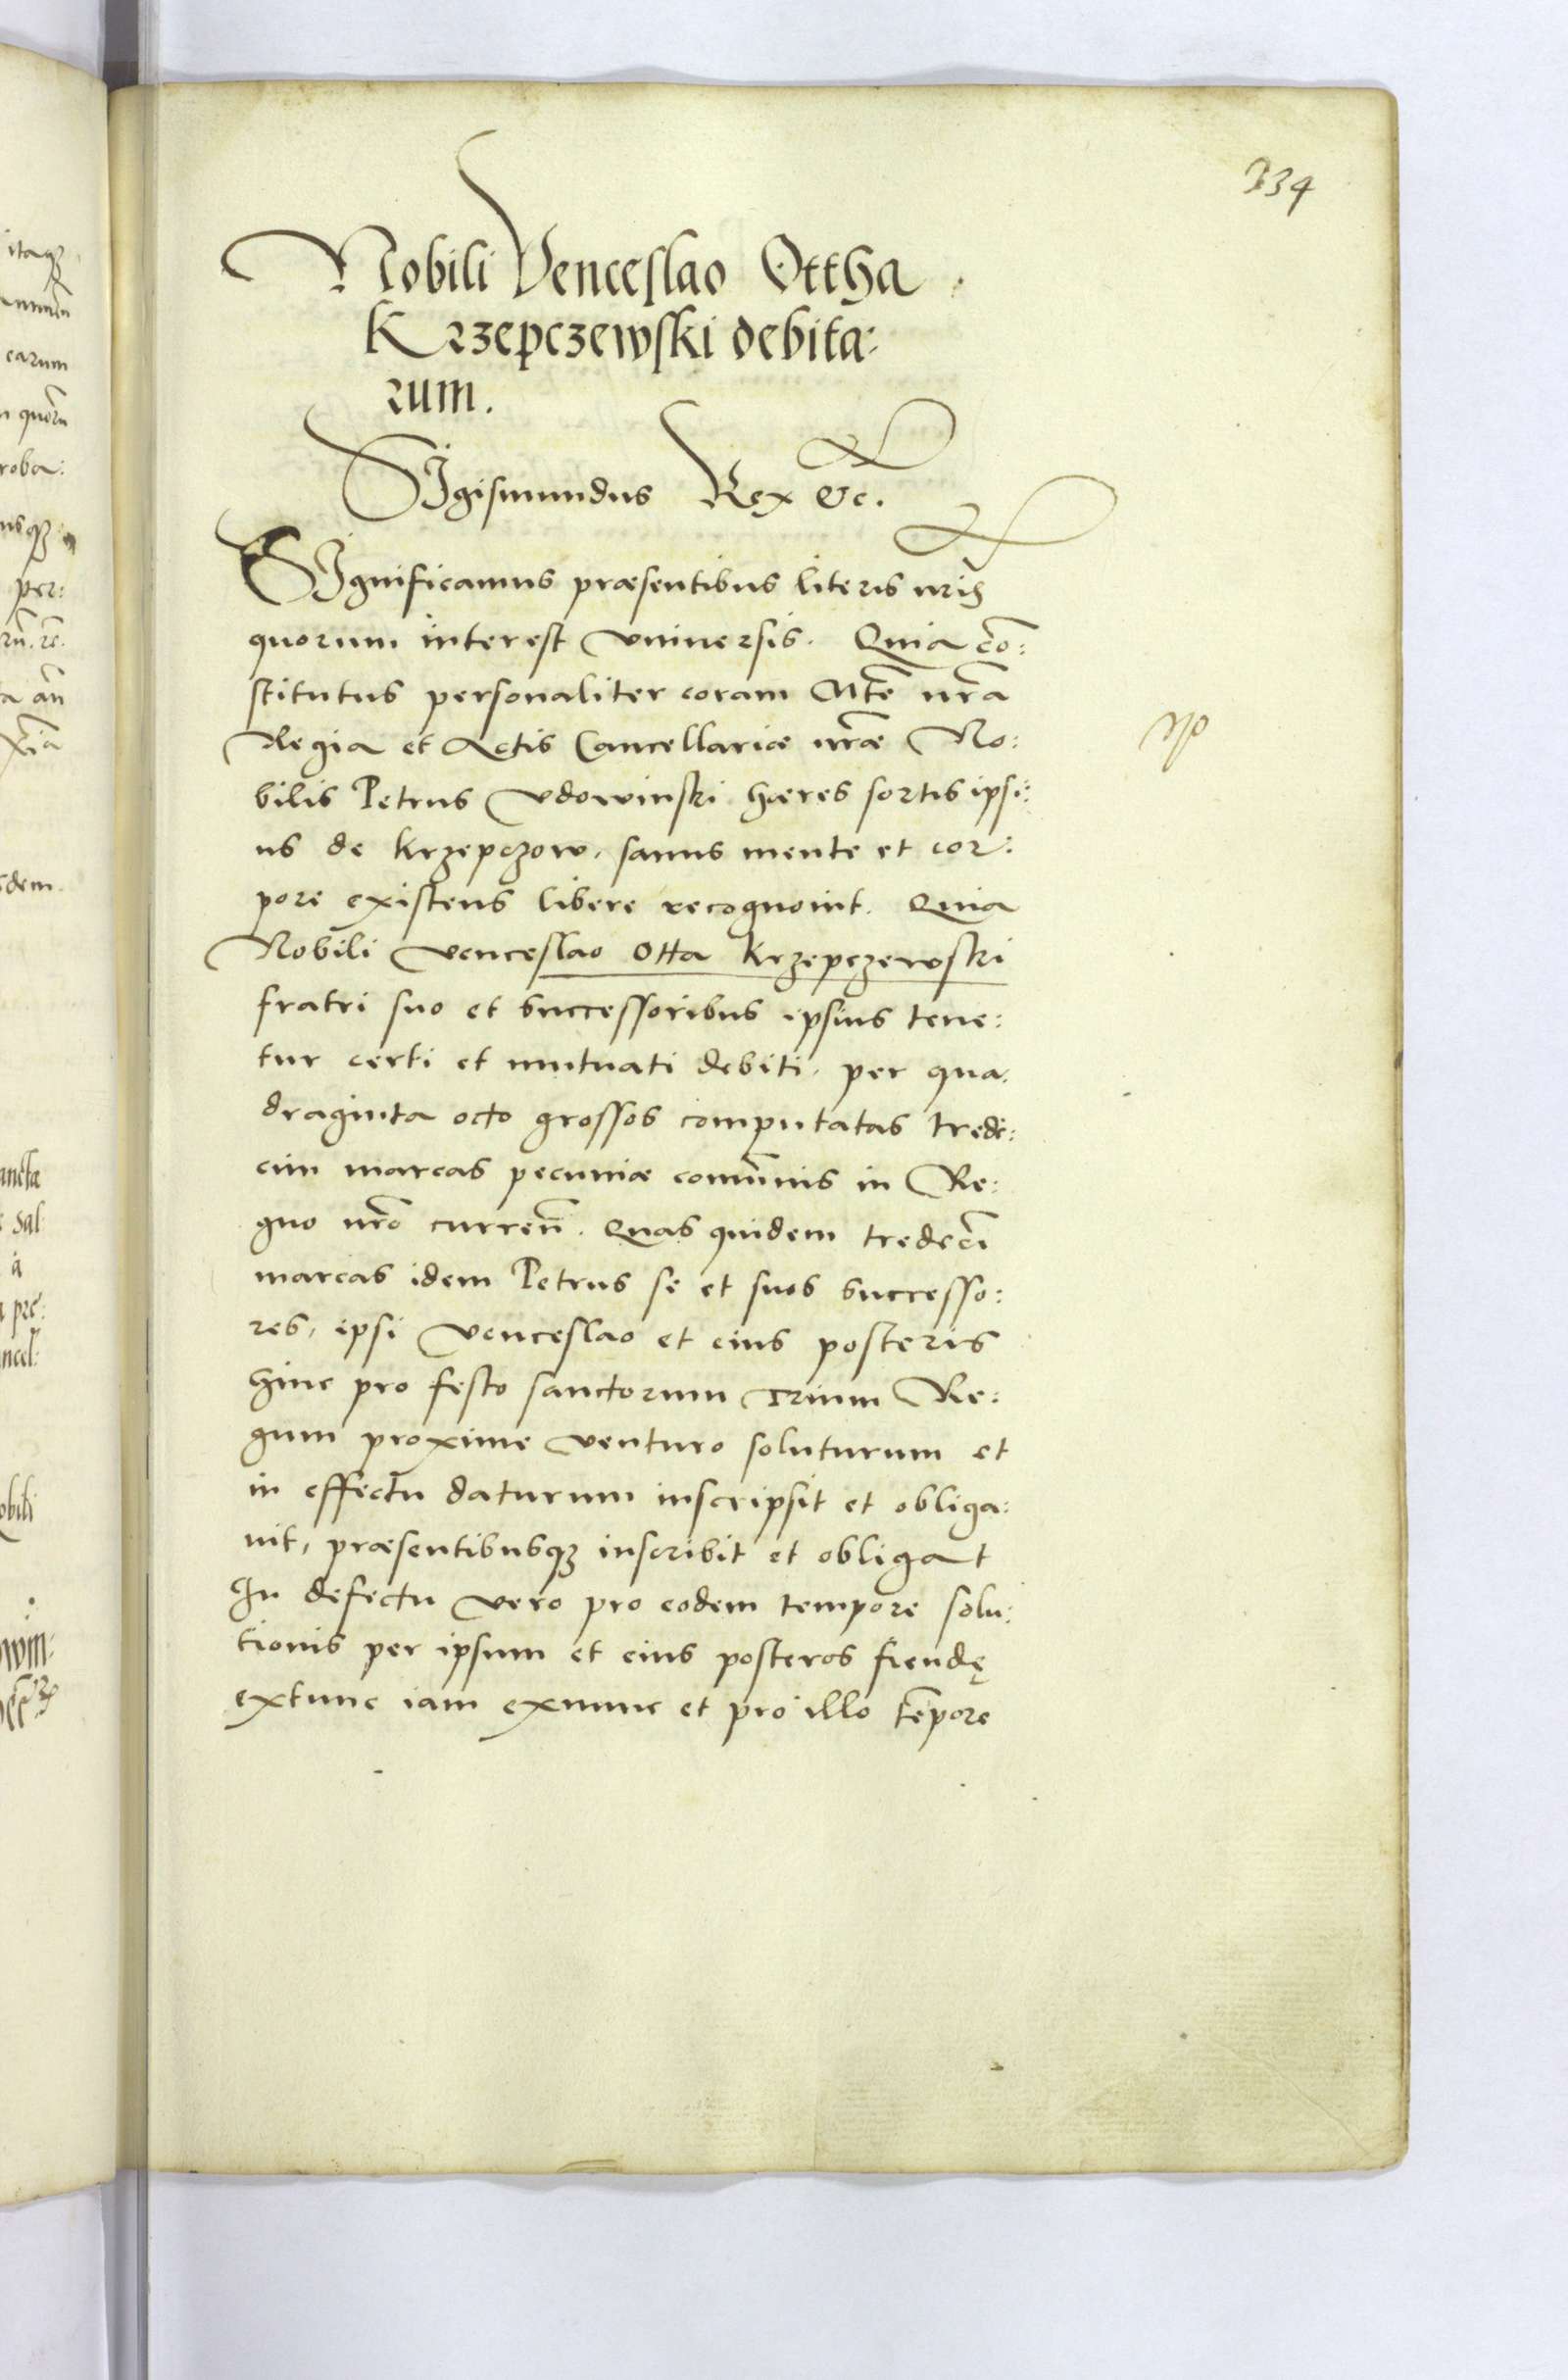 334
Nobili Venceslao Ottha
Krzepczewski debita:
rum.
Sigismundus Rex &c.
Significamus præsentibus literis nris
quorum interest vniuersis. Quia cō:
stitutus personaliter coram Mte nra
Regia et Actis Cancellariæ nræ No:
bilis Petrus Vdowinski hæres sortis ipsi:
us de Krzepczow, sanus mente et cor:
pore existens libere recognouit. Quia
Nobili Venceslao Otta Krzepczewski
fratri suo et successoribus ipsius tene:
tur certi et mutuati debiti, per qua:
draginta octo grossos computatas trede:
cim marcas pecuniæ comunis in Re:
gno nro curren. Quas quidem tredecī
marcas idem Petrus se et suos successo:
res, ipsi Venceslao et eius posteris
hinc pro festo sanctorum Trium Re:
gum proxime venturo soluturum et
in effectu daturum inscripsit et obliga:
uit, præsentibusqꝫ inscribit et obligat
In defectu vero pro eodem tempore solu:
tionis per ipsum et eius posteros fiendę
extunc iam exnunc et pro illo tēpore